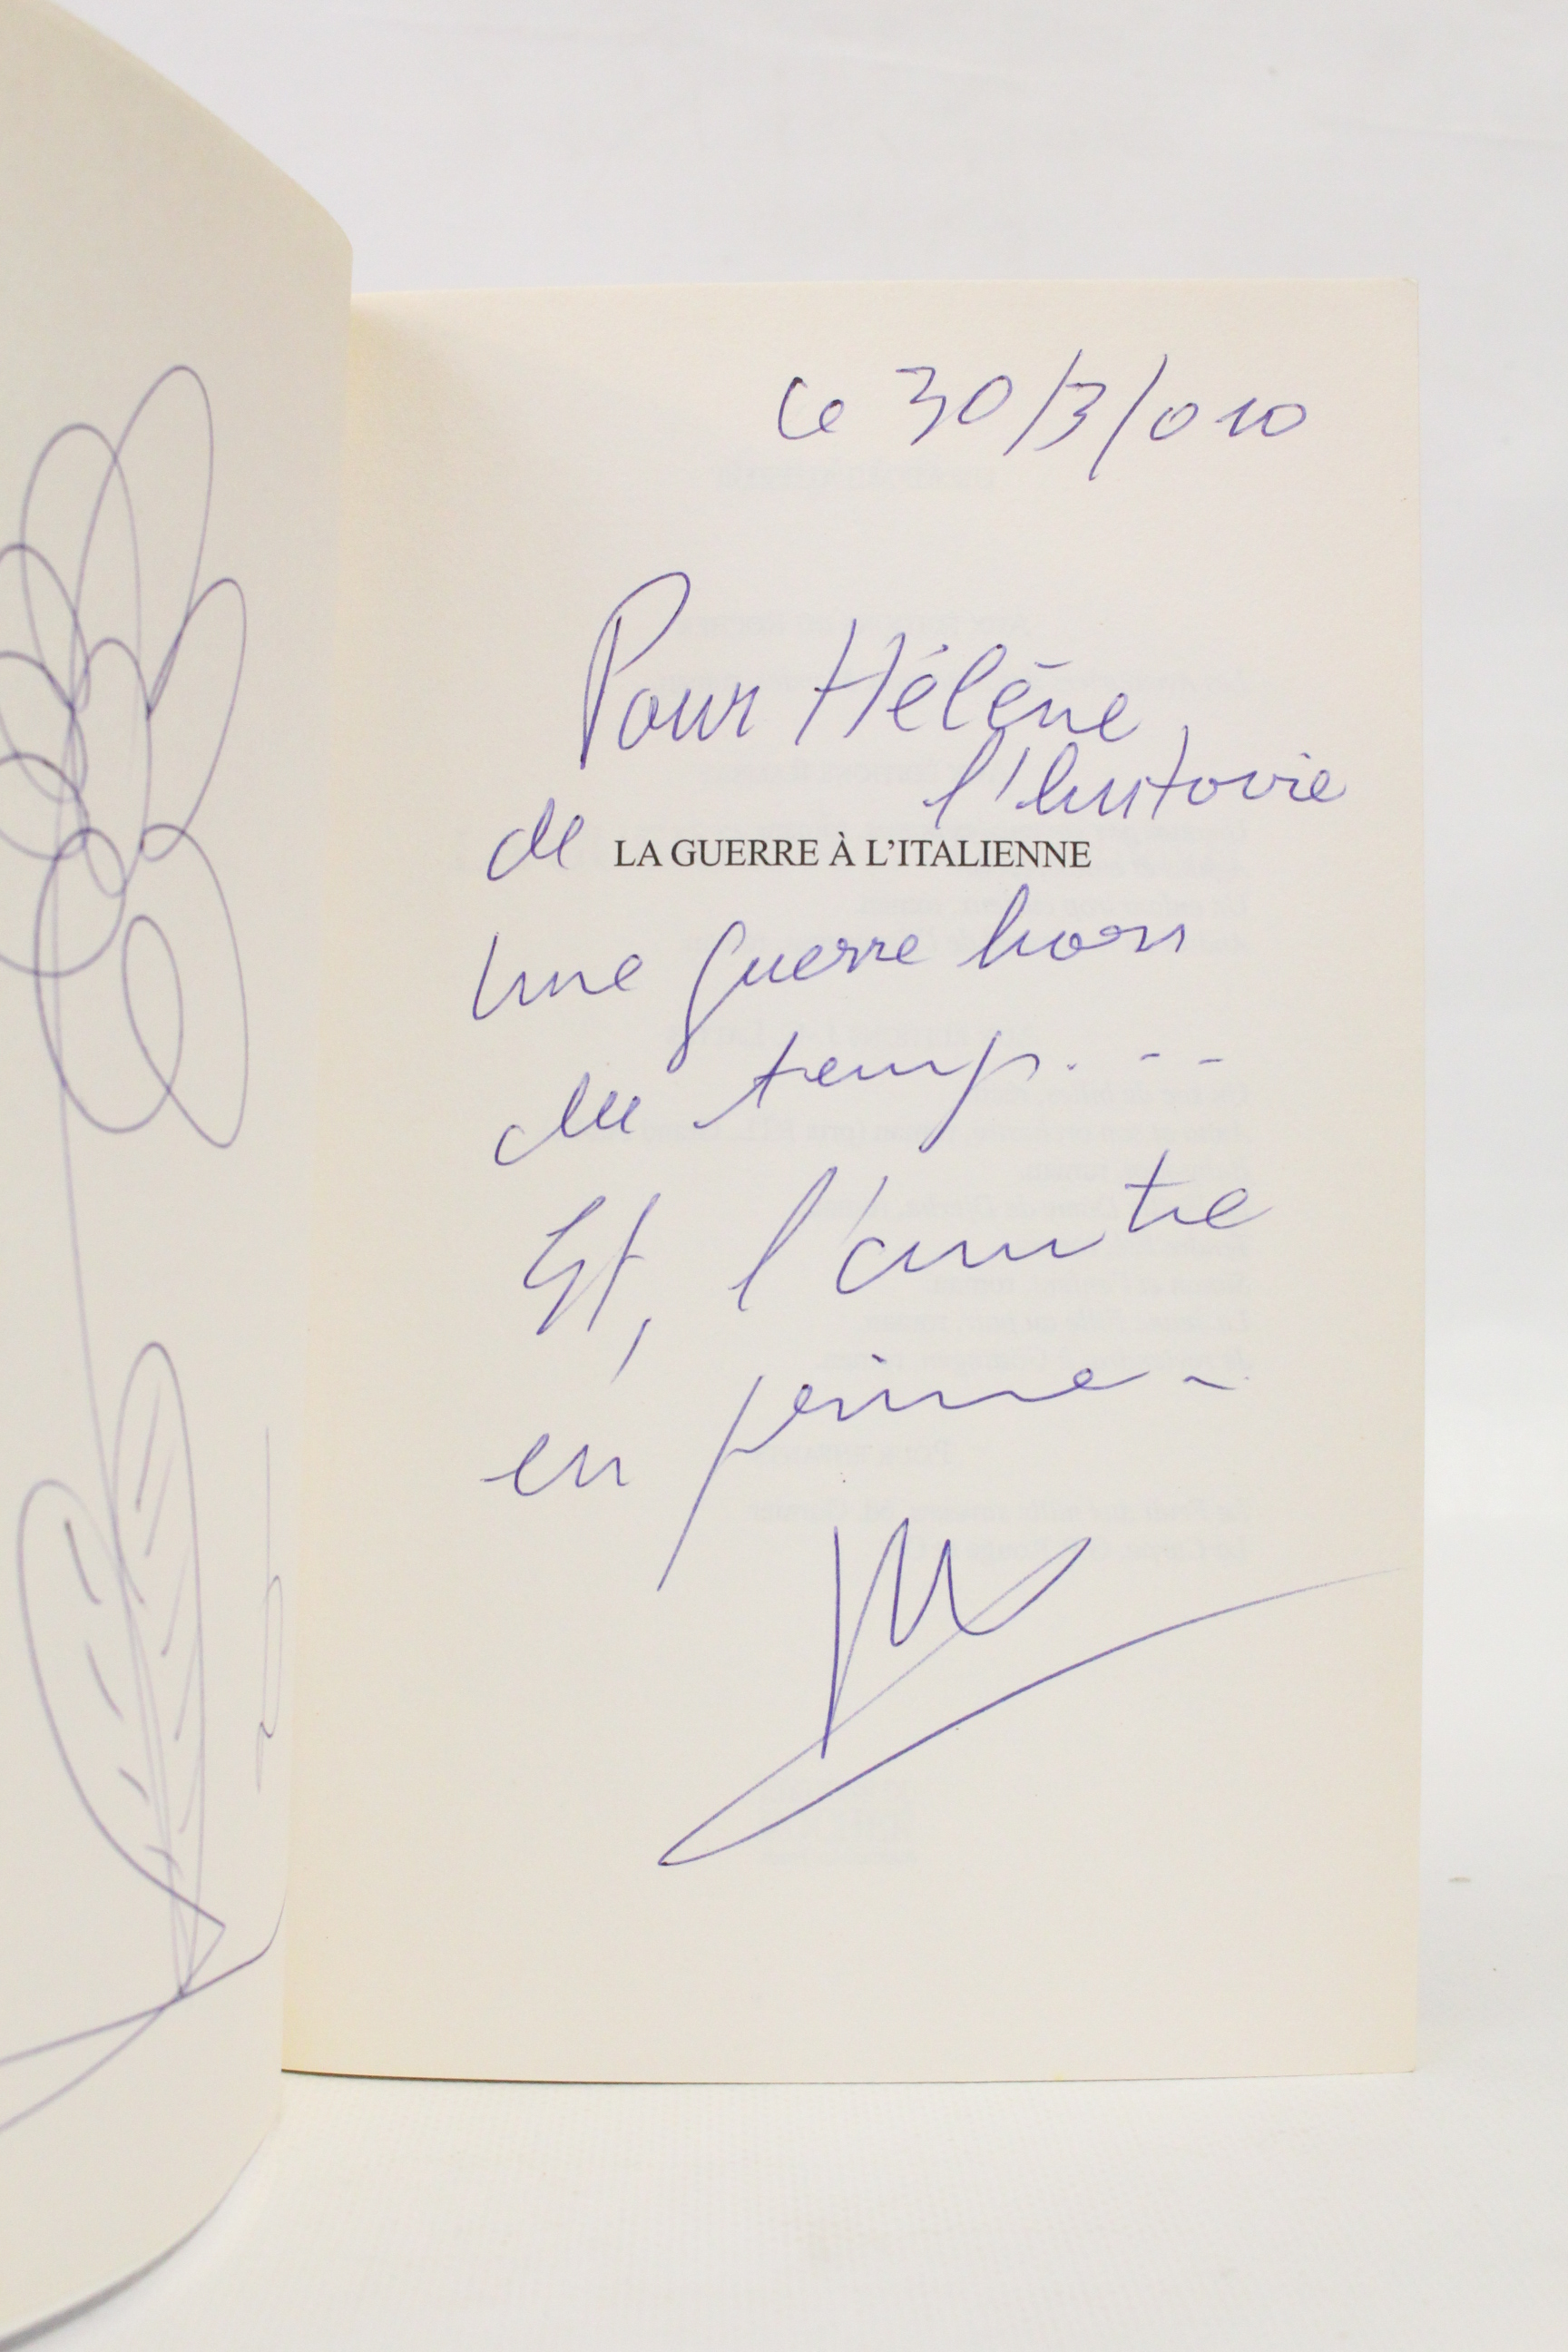 Le 30/3/010
Pour Hélène,
l'histoire
de LA GUERRE À L'ITALIENNE
une guerre hors
du temps...
Et, l'amitié
en prime -